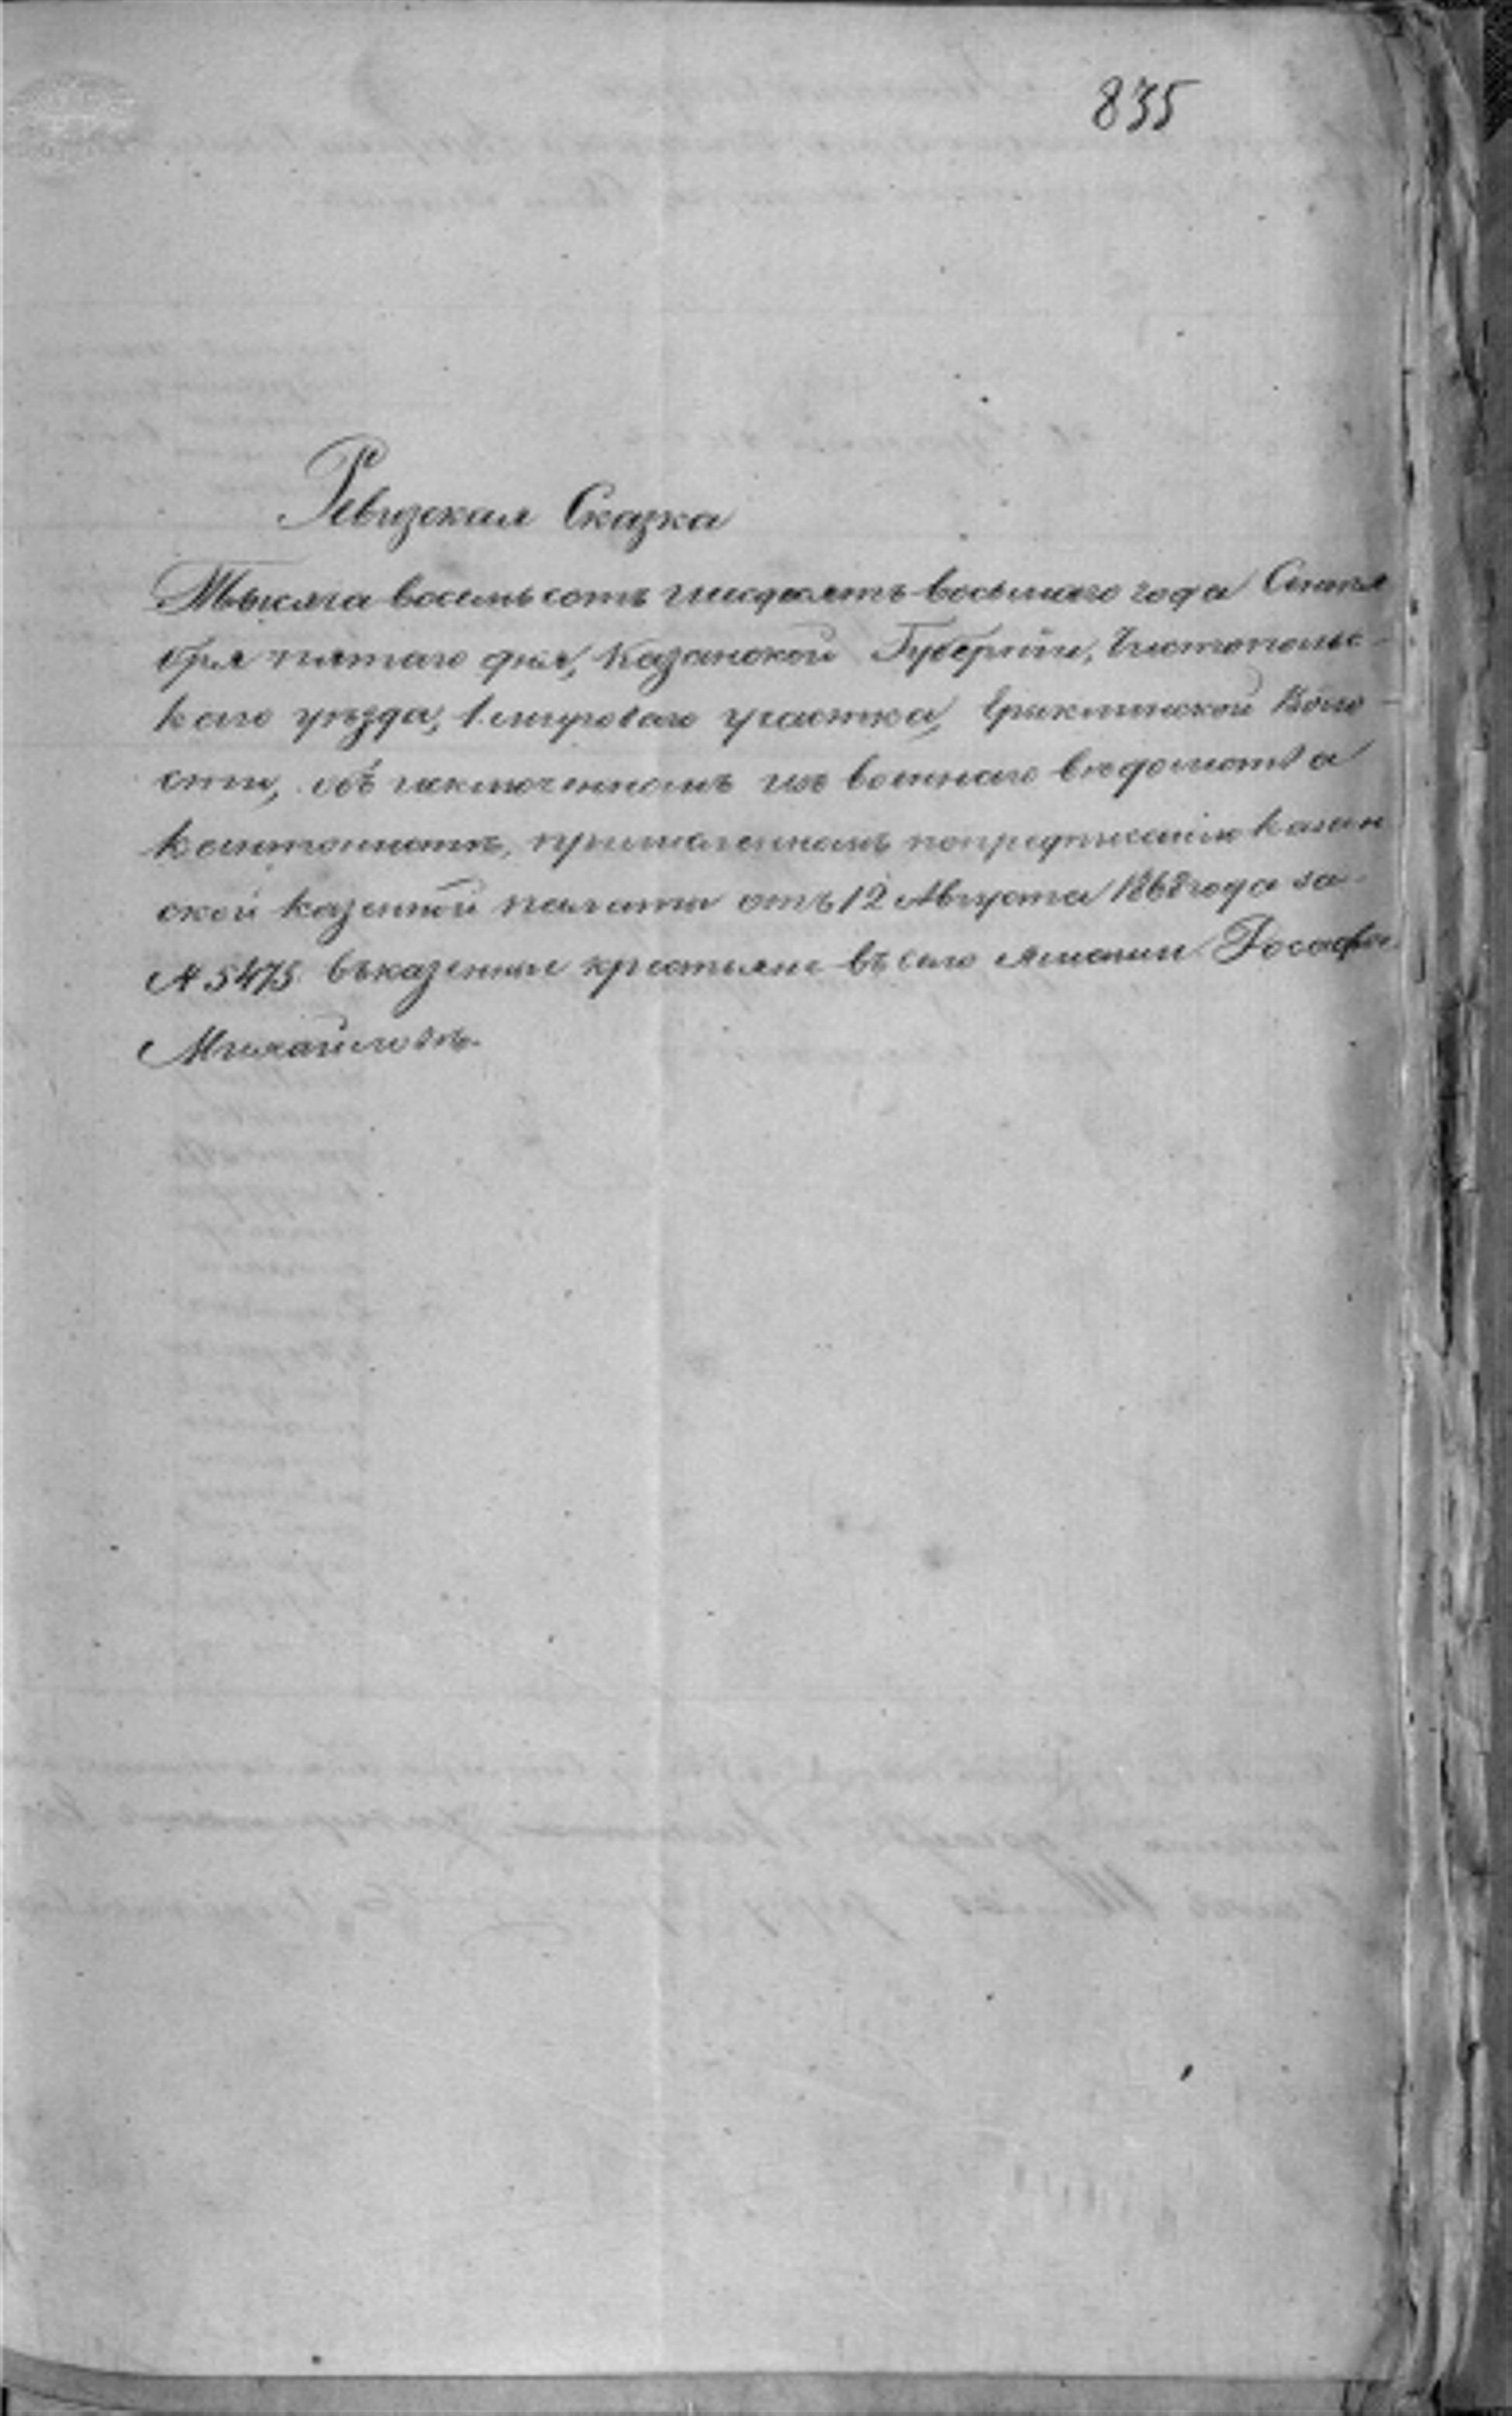 835
Ревизская Сказка
Тысяча восемьсотъ шесдесятъ восьмаго года Сентя
бря пятаго дня, Казанской Губерніи, Чистопольс-
каго уѣзда, 1 мироваго участка, Ераклинской Воло-
сти, объ исключенномъ изъ военнаго вѣдомства
кантонистѣ, причисленномъ попредписанію Казан
ской казенной палаты отъ 12 Августа 1868 года за
№ 5475 въказенные крестьяне въ село
Михайловѣ.